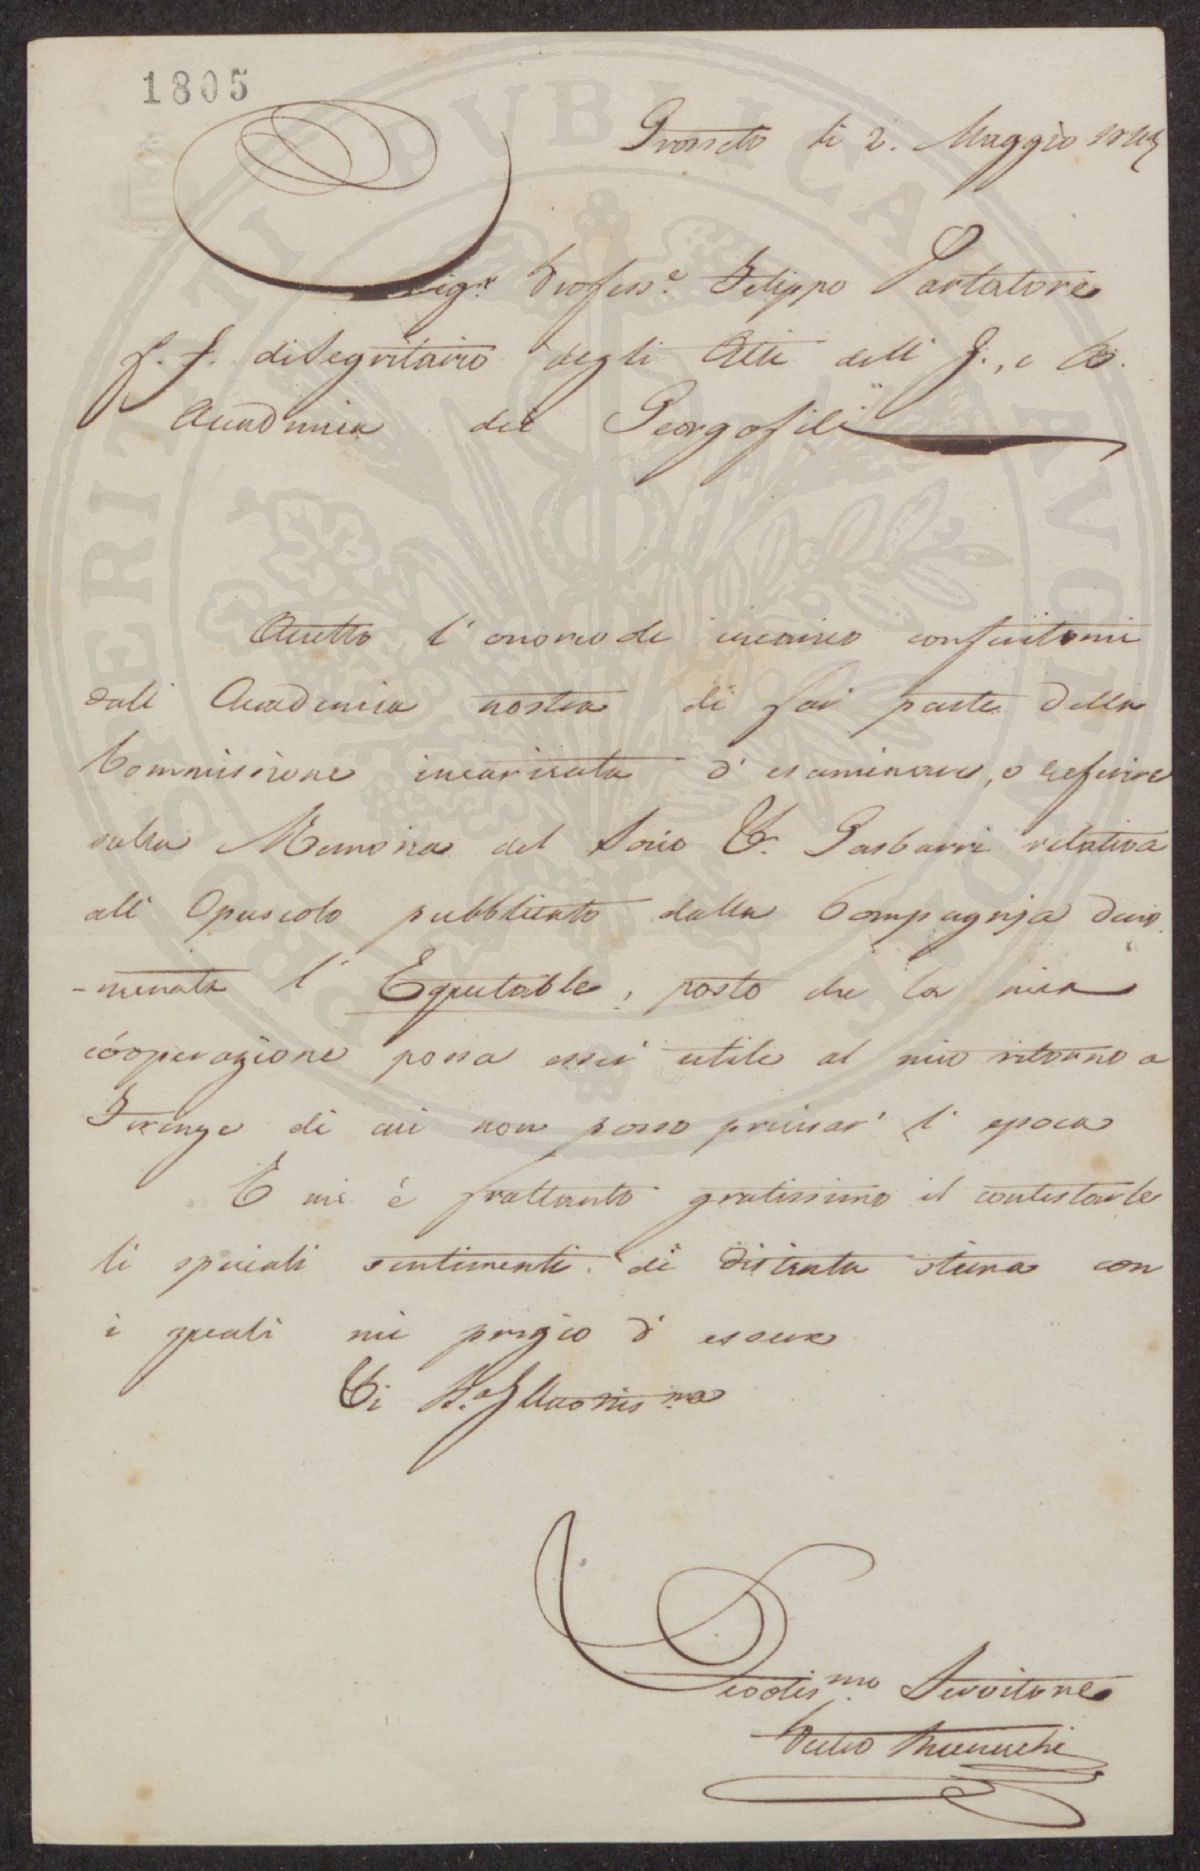 1805
Grosseto li 2. Maggio
Sig.r Profess.e Filippo Partatore
f. f. di Segretario degli Atti dell' I., e R.
Accademia dei Georgofili
Accetto l'onorevole incarico conferitomi
dall' Accademia nostra di far parte della
Commissione incaricata d'esaminare, e referire
sulla Memoria del Socio Gasbarri relativa
all' Opuscolo pubblicato dalla Compagnia deno
-minata l' Equitable, posto che la mia
cooperazione possa esser utile al mio ritorno a
Firenze di cui non posso precisar l'epoca
E mi é frattanto gratissimo il contestarle
li speciali sentimenti di distinta stima con
i quali mi pregio d'essere
Di V.a Illustris.ma
Devotis.mo Servitore